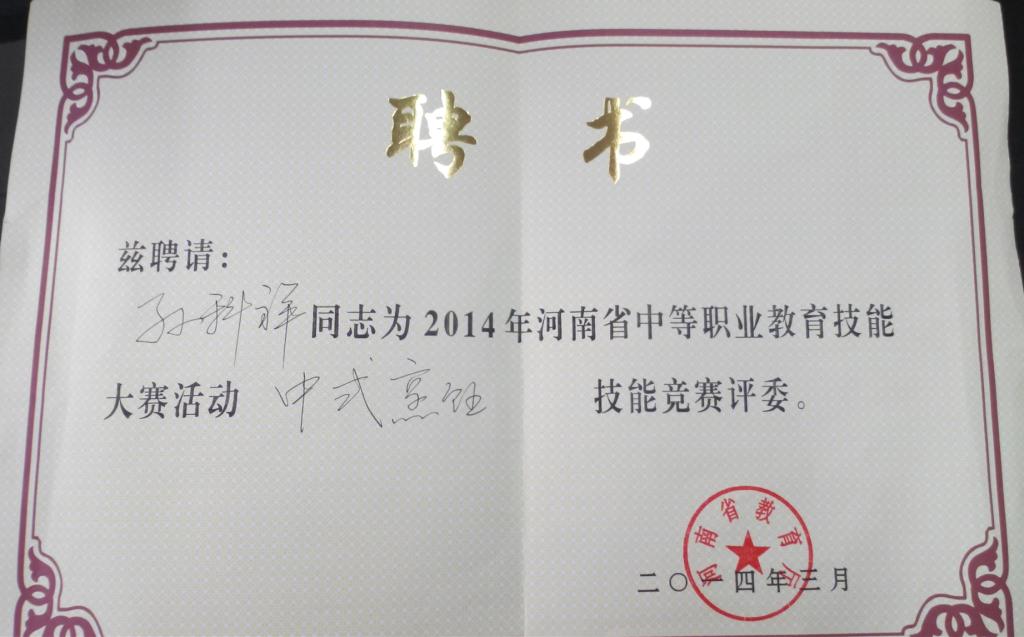 聘 书
兹聘请：
孙科祥同志为2014年河南省中等职业教育技能
大赛活动 中式烹饪 技能竞赛评委。
河南省教育厅
二〇一四年三月